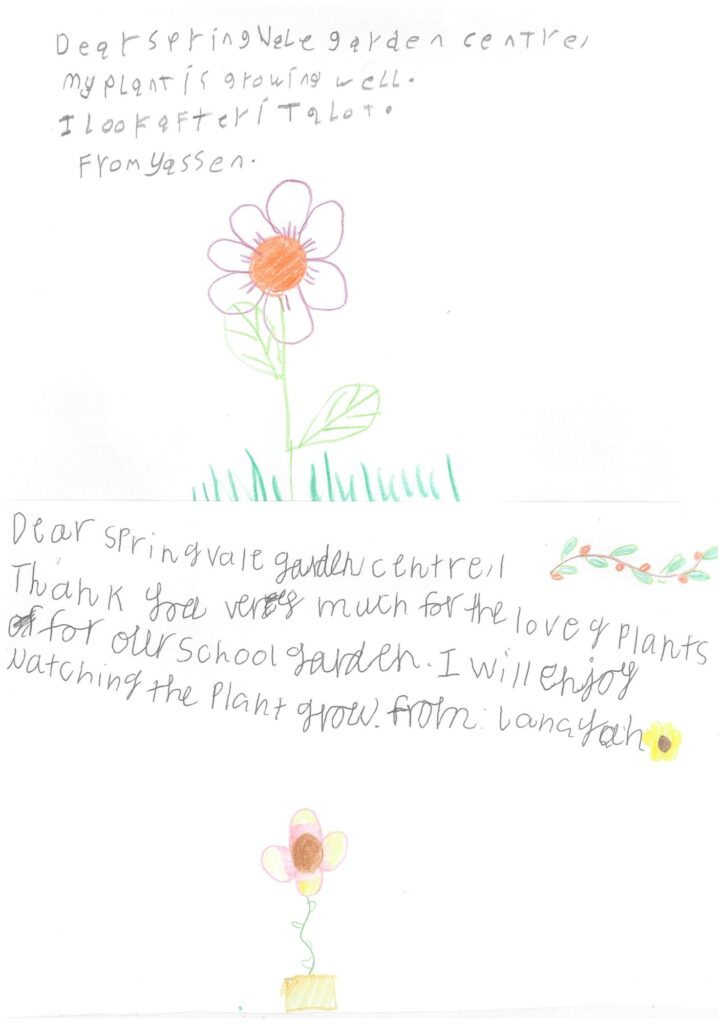 Dear springvale garden centre,
my plant is growing well.
I look after iT a lot.
From yassen.
Dear springvale garden centre,
Thank you very much for the lovey plants
for our school garden. I will enjoy
watching the plant grow. from: lanayah